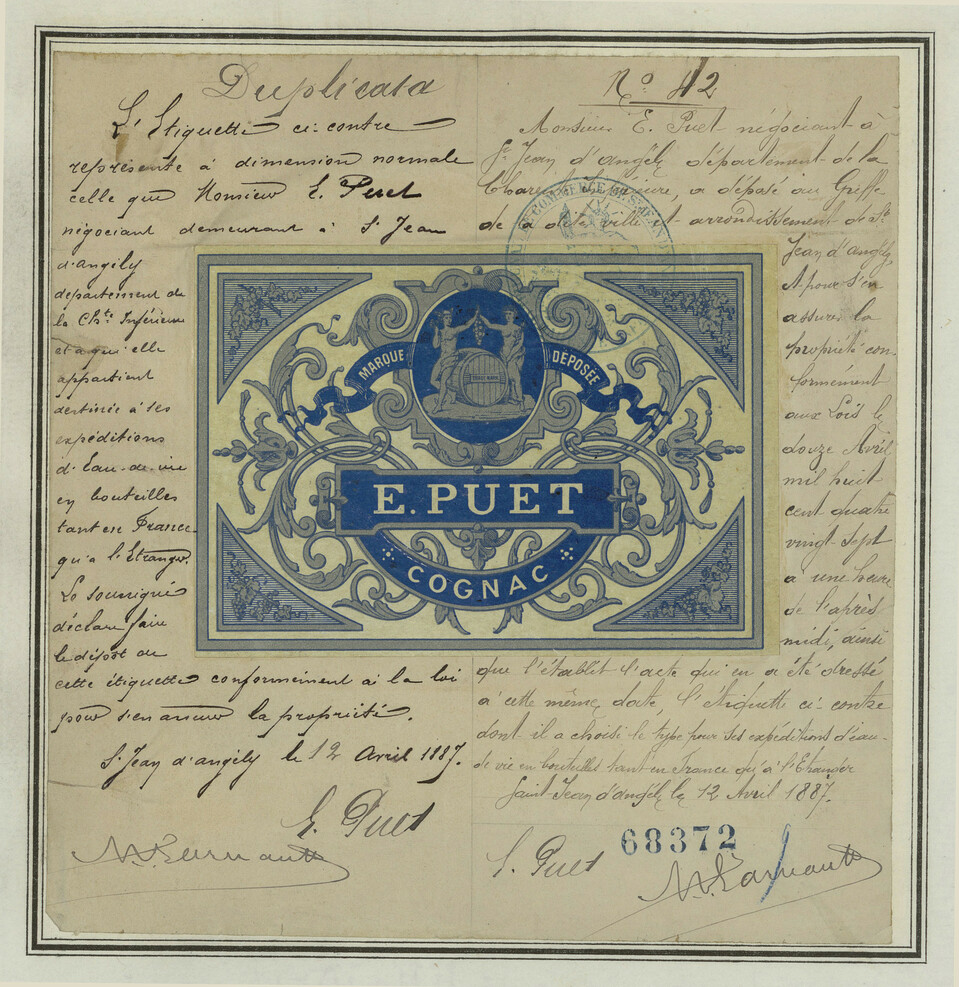 Duplicata
L'Etiquette ci-contre
représente à dimension normale
celle que Monsieur E. Puet
négociant demeurant à St Jean
d'angély
département de
la Chte Inférieure
et a qu'elle
appartient
destinée à ses
expéditions
d'Eau-de-vie
en bouteilles
tant en France
qu'à l'Etranger.
Le soussigné
déclare faire
le dépôt de
cette étiquette conformément à la loi
pour s'en assurer la propriété.
St Jean d'angély le 12 Avril 1887.
E. Puet
No. 42
Monsieur E. Puet négociant à
St Jean d'angély département de la
Charente Inférieure, a déposé au Greffe
de la dite ville et arrondissement de St
Jean d'angély,
Et pour s'en
assurer la
propriété con-
formément
aux Lois le
douze Avril
mil huit
cent quatre
vingt sept
à une heure
de l'après
midi, ainsi
que l'établit l'acte qui en a été dressé
à cette même date, l'étiquette ci-contre
dont il a choisi le type pour ses expéditions d'eau-
de vie en bouteilles tant en France qu'à l'Etranger
Saint-Jean d'angély le 12 Avril 1887.
E. Puet
68372
MARQUE DÉPOSÉE
E. PUET
COGNAC